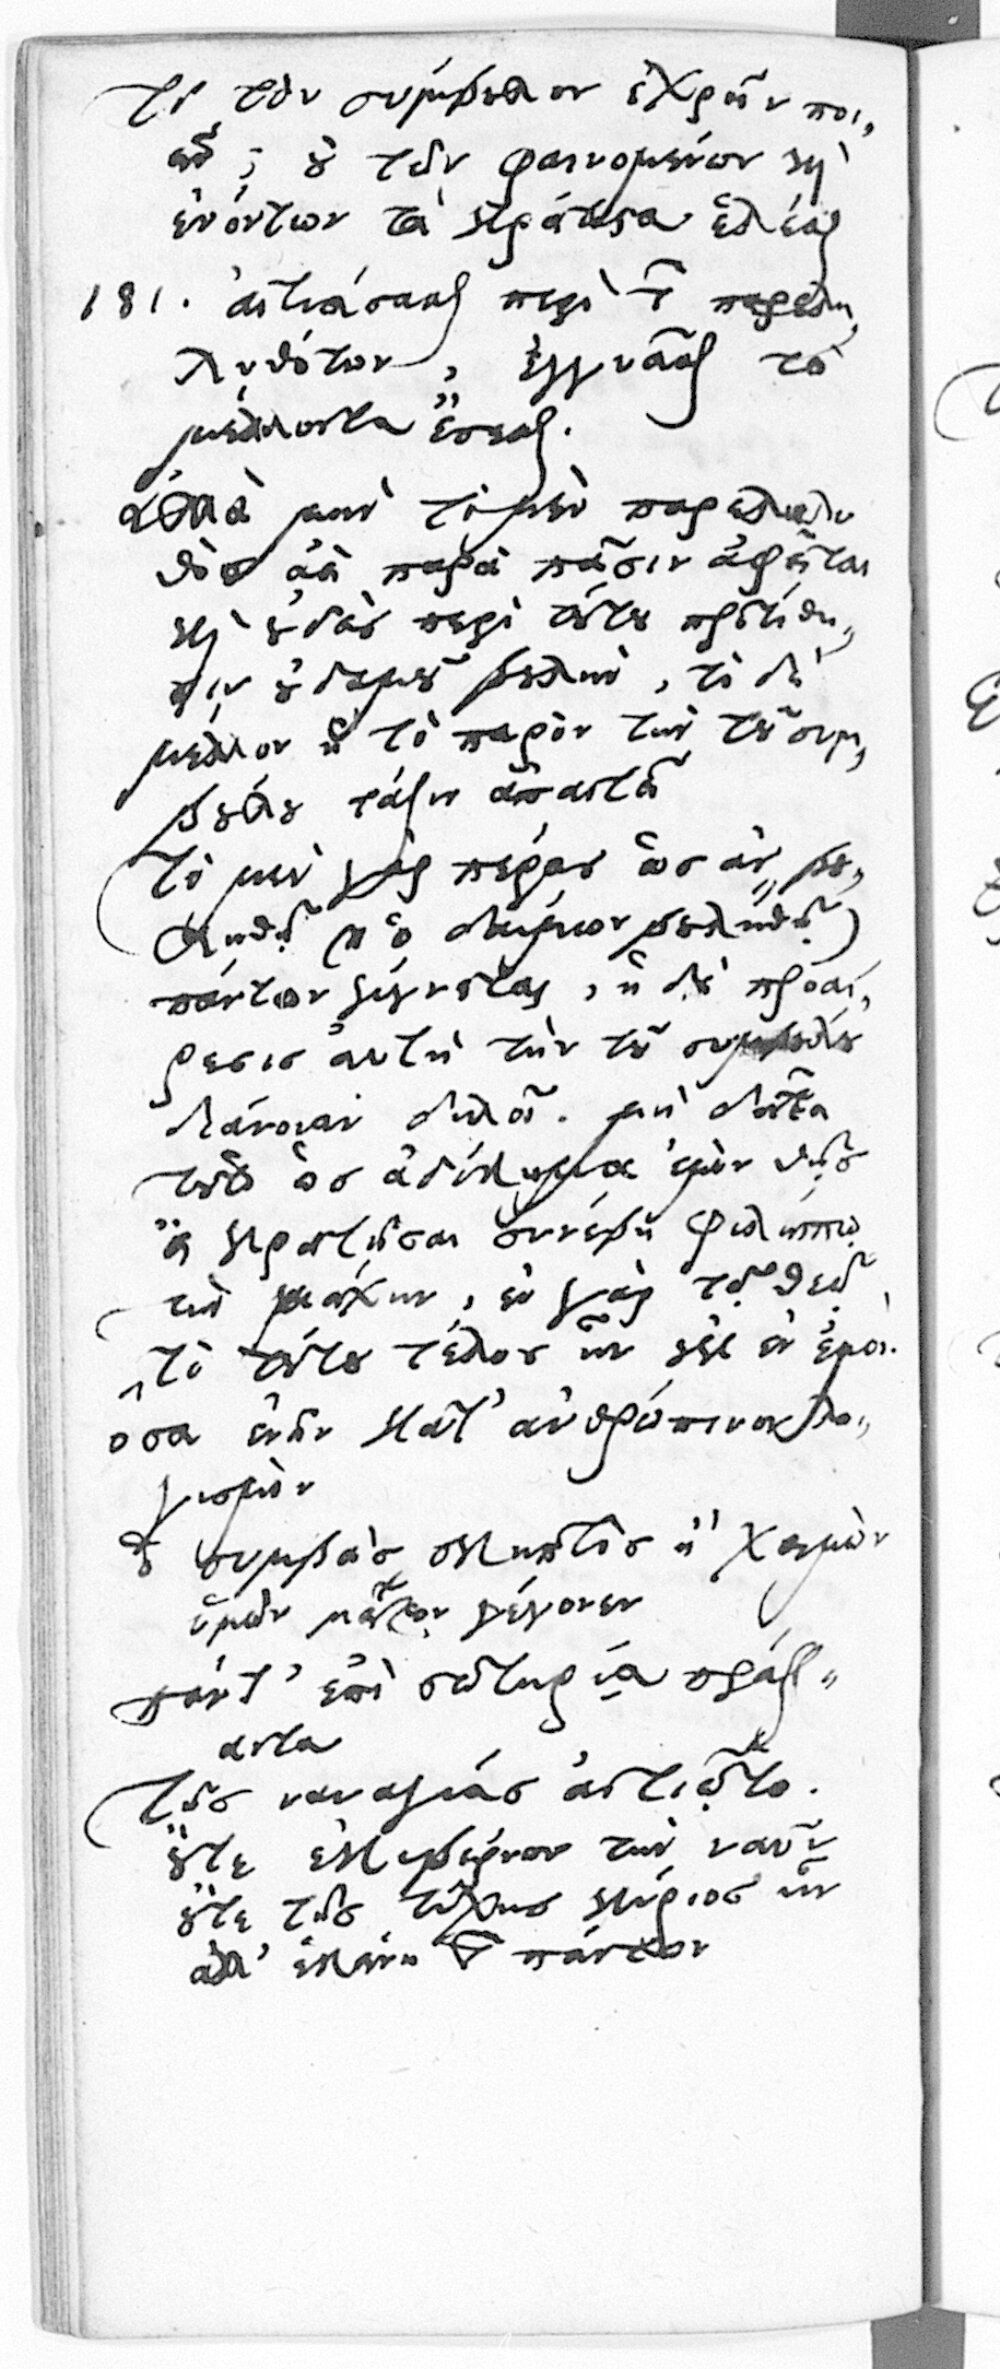 τί τὸν σύμβουλον ἐχρῆν ποι„
εῖν ; οὐ τῶν φαινομένων καὶ
ἐνόντων τὰ κράτιστα ἑλέσθαι
181. αἰτιάσασθαι περὶ τῶν παρελη„
λυθότων, ἐγγυᾶσθαι τὰ
μέλλοντα ἔσεσθαι.
ἀλλὰ μὴν τὸ μὲν παρεληλυ
θὸς ἀεὶ παρὰ πᾶσιν ἀφεῖται
καὶ οὐδεὶς περὶ τούτου προτίθη„
σιν οὐδαμοῦ βουλήν, τὸ δὲ
μέλλον ἢ τὸ παρὸν τὴν τοῦ συμ„
βούλου τάξιν ἀπαιτεῖ
τὸ μὲν γὰρ πέρας ὡς ἂν βου„
ληθῇ (ἢ ὁ δαίμων βουληθῇ)
πάντων γίγνεται, ἡ δὲ προαί„
ρεσις αὐτὴ τὴν τοῦ συμβούλου
διάνοιαν δηλοῖ. μὴ δὴ
τοῦτο ὡς ἀδίκημα ἐμὸν θῇς
εἰ κρατῆσαι συνέβη Φιλίππῳ
τῇ μάχῃ, ἐν γὰρ τῷ θεῷ
τὸ τούτου τέλος ἦν οὐκ ἐν ἐμοί.
ὅσα ἐνῆν κατ' ἀνθρώπινον λο„
γισμὸν
ὁ συμβὰς σκηπτὸς ἢ χειμὼν
ἡμῶν μείζων γέγονεν
πάντ' ἐπὶ σωτηρίᾳ πράξ„
αντα
τῆς ναυαγίας αἰτιῷτο.
οὔτε ἐκυβέρνων τὴν ναῦν
οὔτε τῆς τύχης κύριος ἦν
ἀλλ' ἐκείνη τῶν πάντων